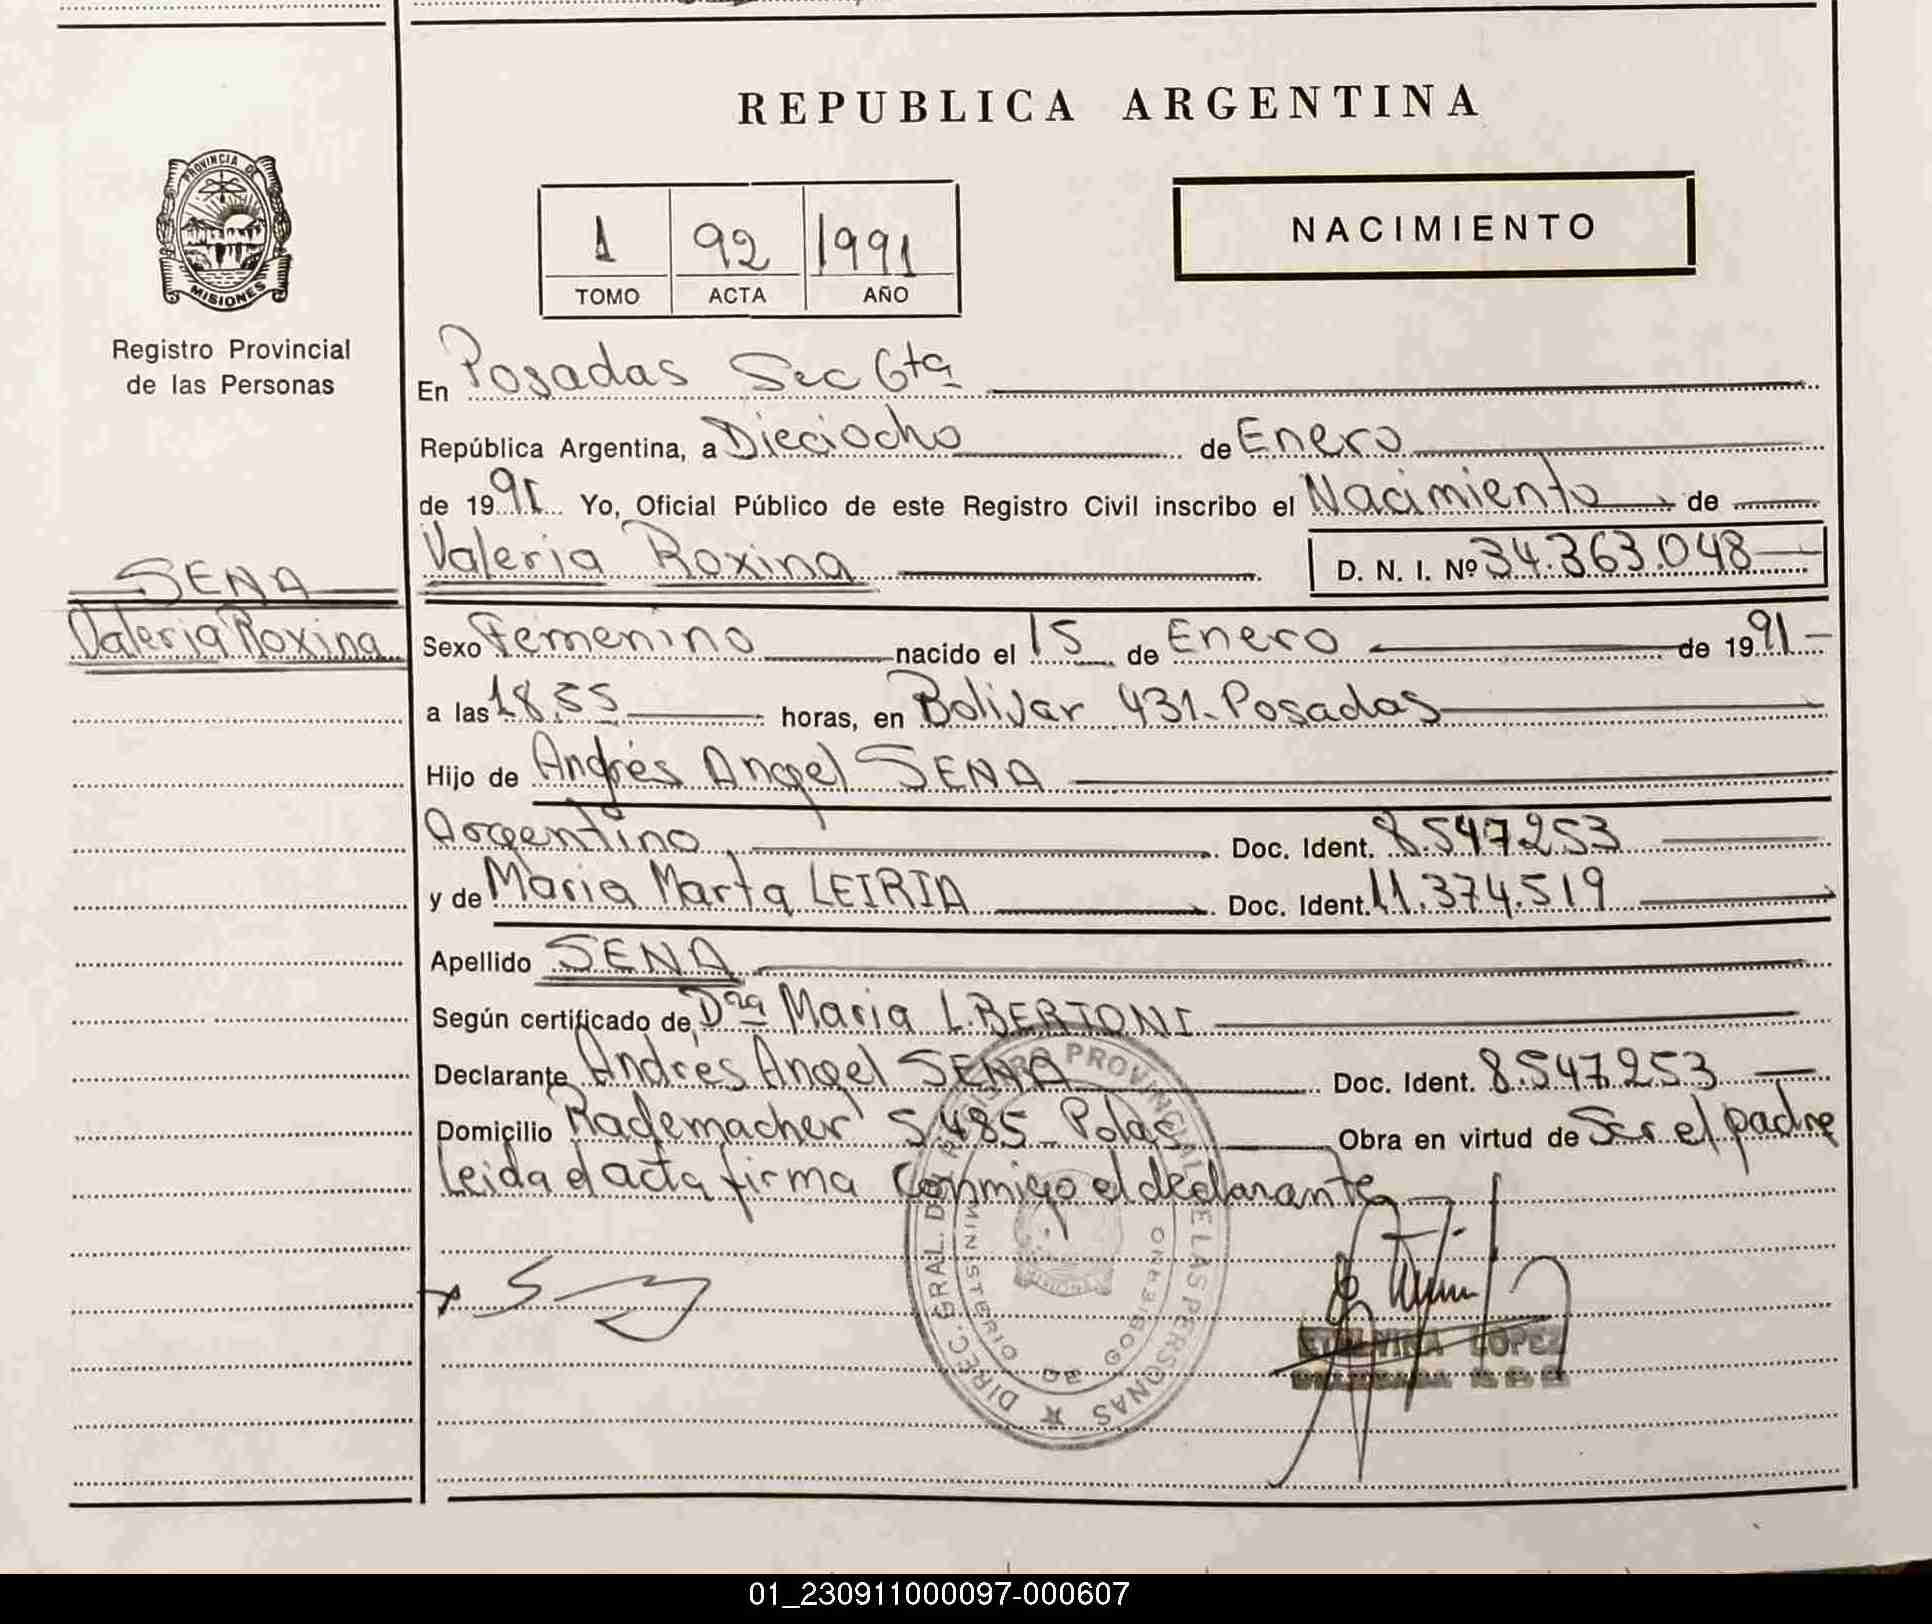 REPUBLICA ARGENTINA
PROVINCIA DE MISIONES
Registro Provincial
de las Personas
1 92 1991
TOMO ACTA AÑO
NACIMIENTO
En Posadas Sec 6ta
República Argentina, a Dieciocho de Enero
de 1991 Yo, Oficial Público de este Registro Civil inscribo el Nacimiento de
Valeria Roxina D. N. I. Nº 34.363.048
SENA
Valeria Roxina
Sexo Femenino nacido el 15 de Enero de 1991
a las 18.55 horas, en Bolivar 431-Posadas
Hijo de Andrés Angel SENA
Argentino Doc. Ident. 8.547.253
y de Maria Marta LEIRIA Doc. Ident. 11.374.519
Apellido SENA
Según certificado de Dra Maria L. BERTONI
Declarante Andrés Angel SENA Doc. Ident. 8.547.253
Domicilio Rademacher 5.485 Pdas Obra en virtud de Ser el padre
Leida el acta firma Conmigo el declarante
DIREC. GRAL. DEL REGISTRO PROVINCIAL DE LAS PERSONAS
MINISTERIO DE GOBIERNO
LOPEZ
01_230911000097-000607